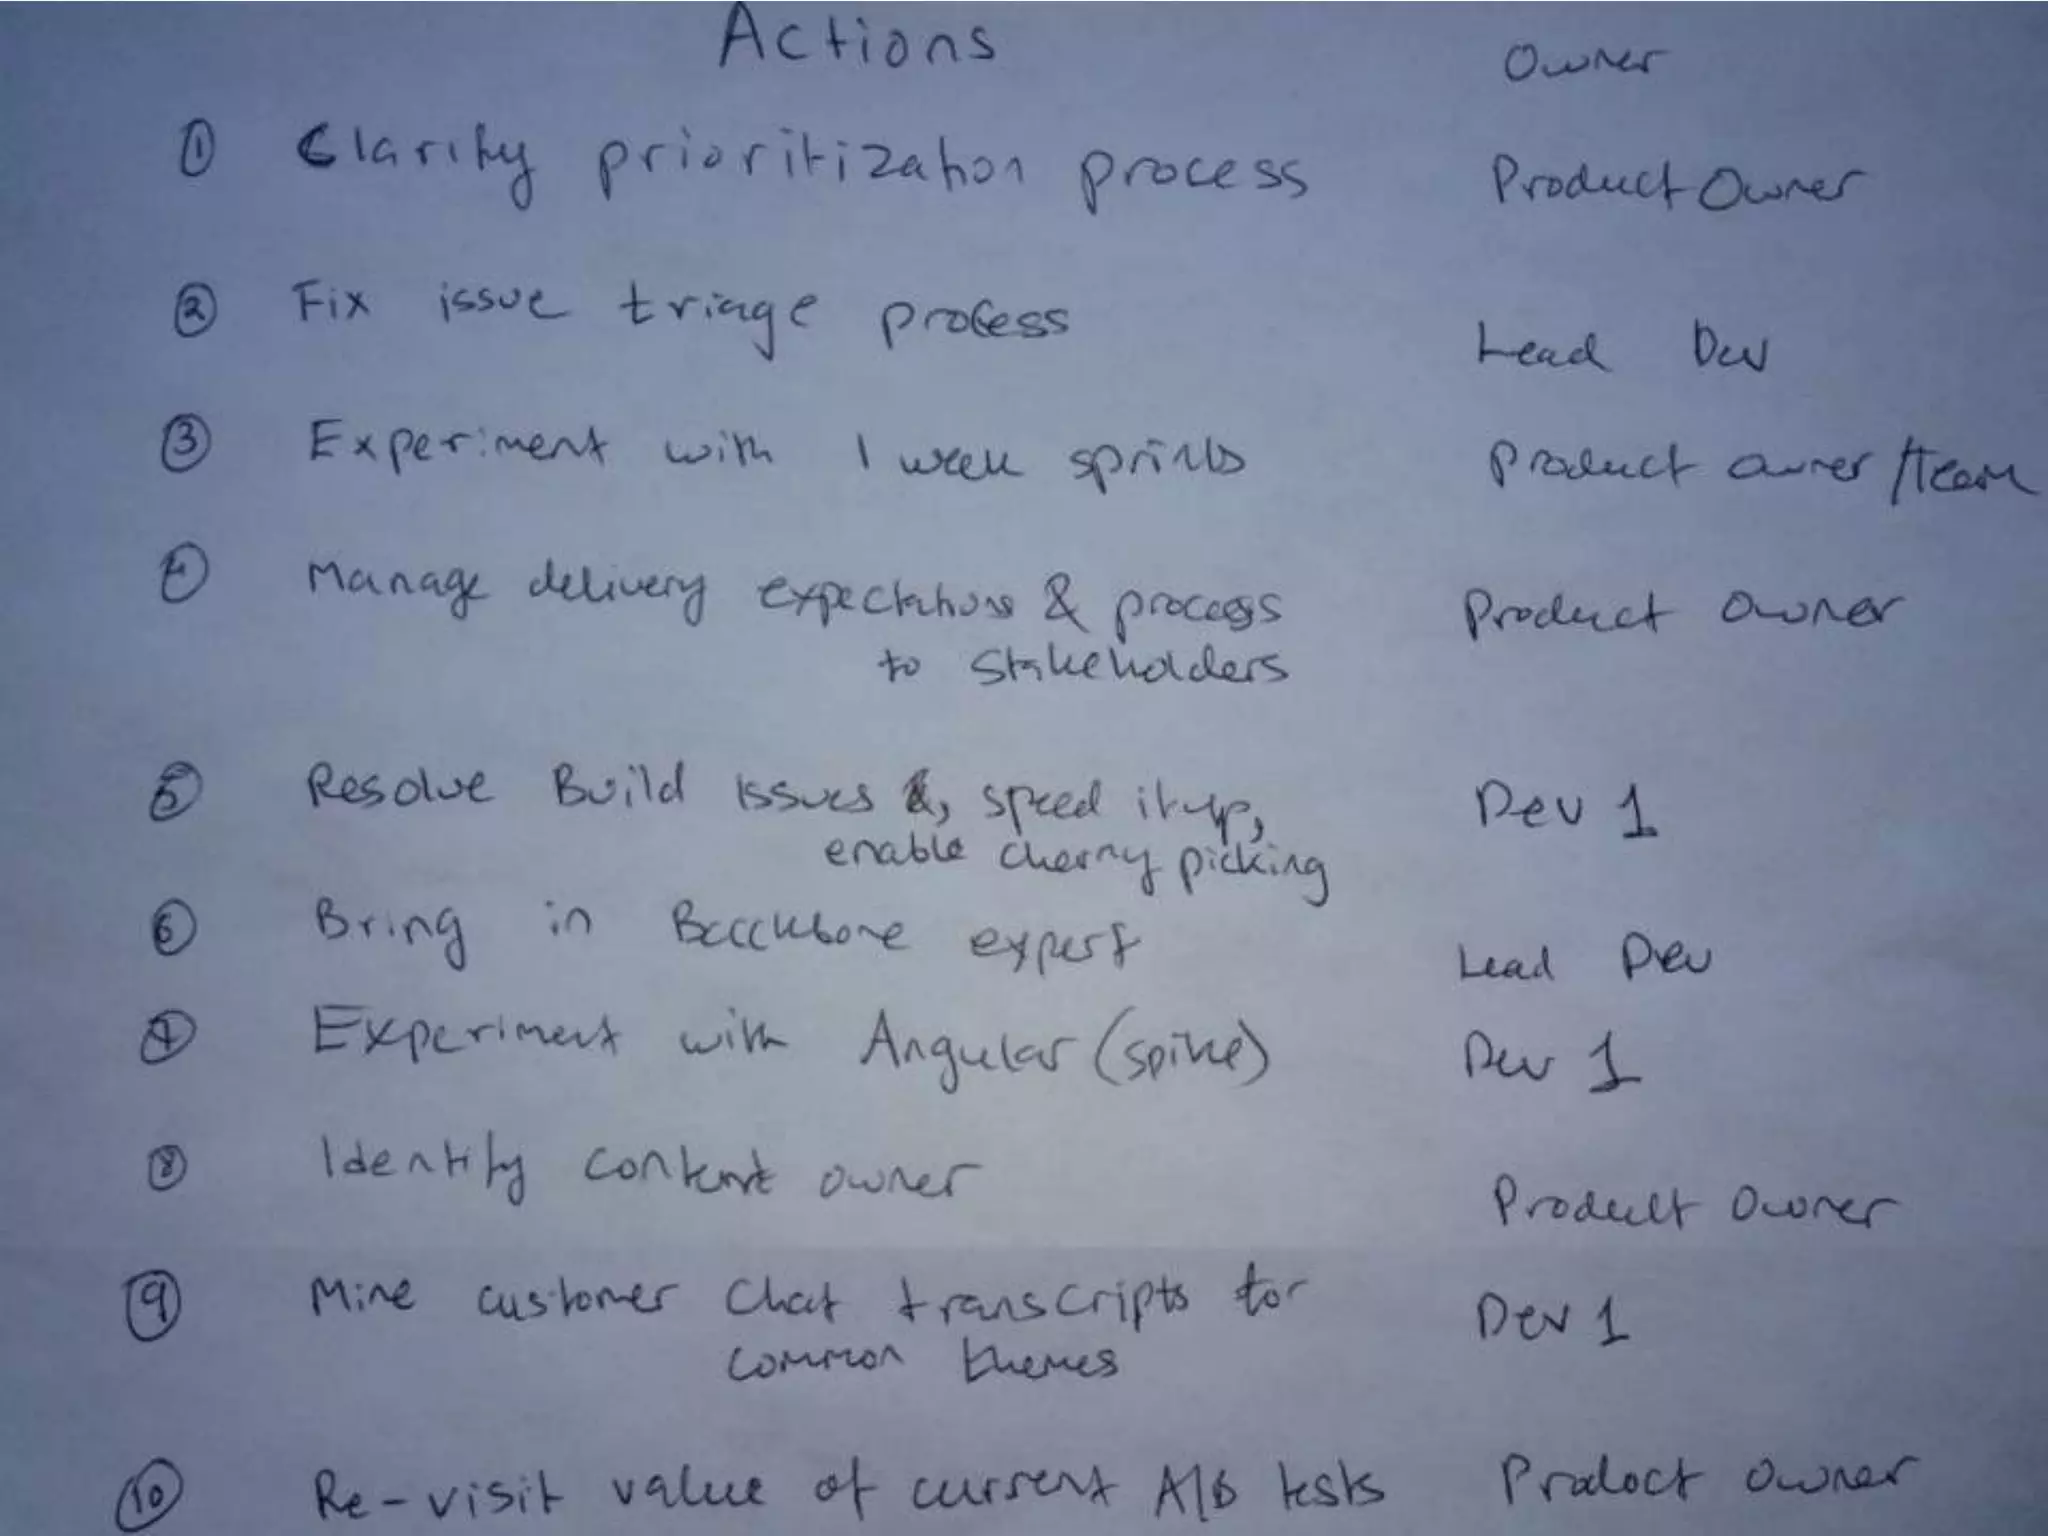 Actions Owner
① Clarify prioritization process Product Owner
② Fix issue triage process Lead Dev
③ Experiment with 1 week sprints Product owner/Team
④ Manage delivery expectations & process Product Owner
to Stakeholders
⑤ Resolve Build issues &, speed it up, Dev 1
enable cherry picking
⑥ Bring in Backbone expert Lead Dev
⑦ Experiment with Angular (spike) Dev 1
⑧ Identify content owner Product Owner
⑨ Mine customer Chat transcripts for Dev 1
common themes
⑩ Re-visit value of current A/B tests Product Owner